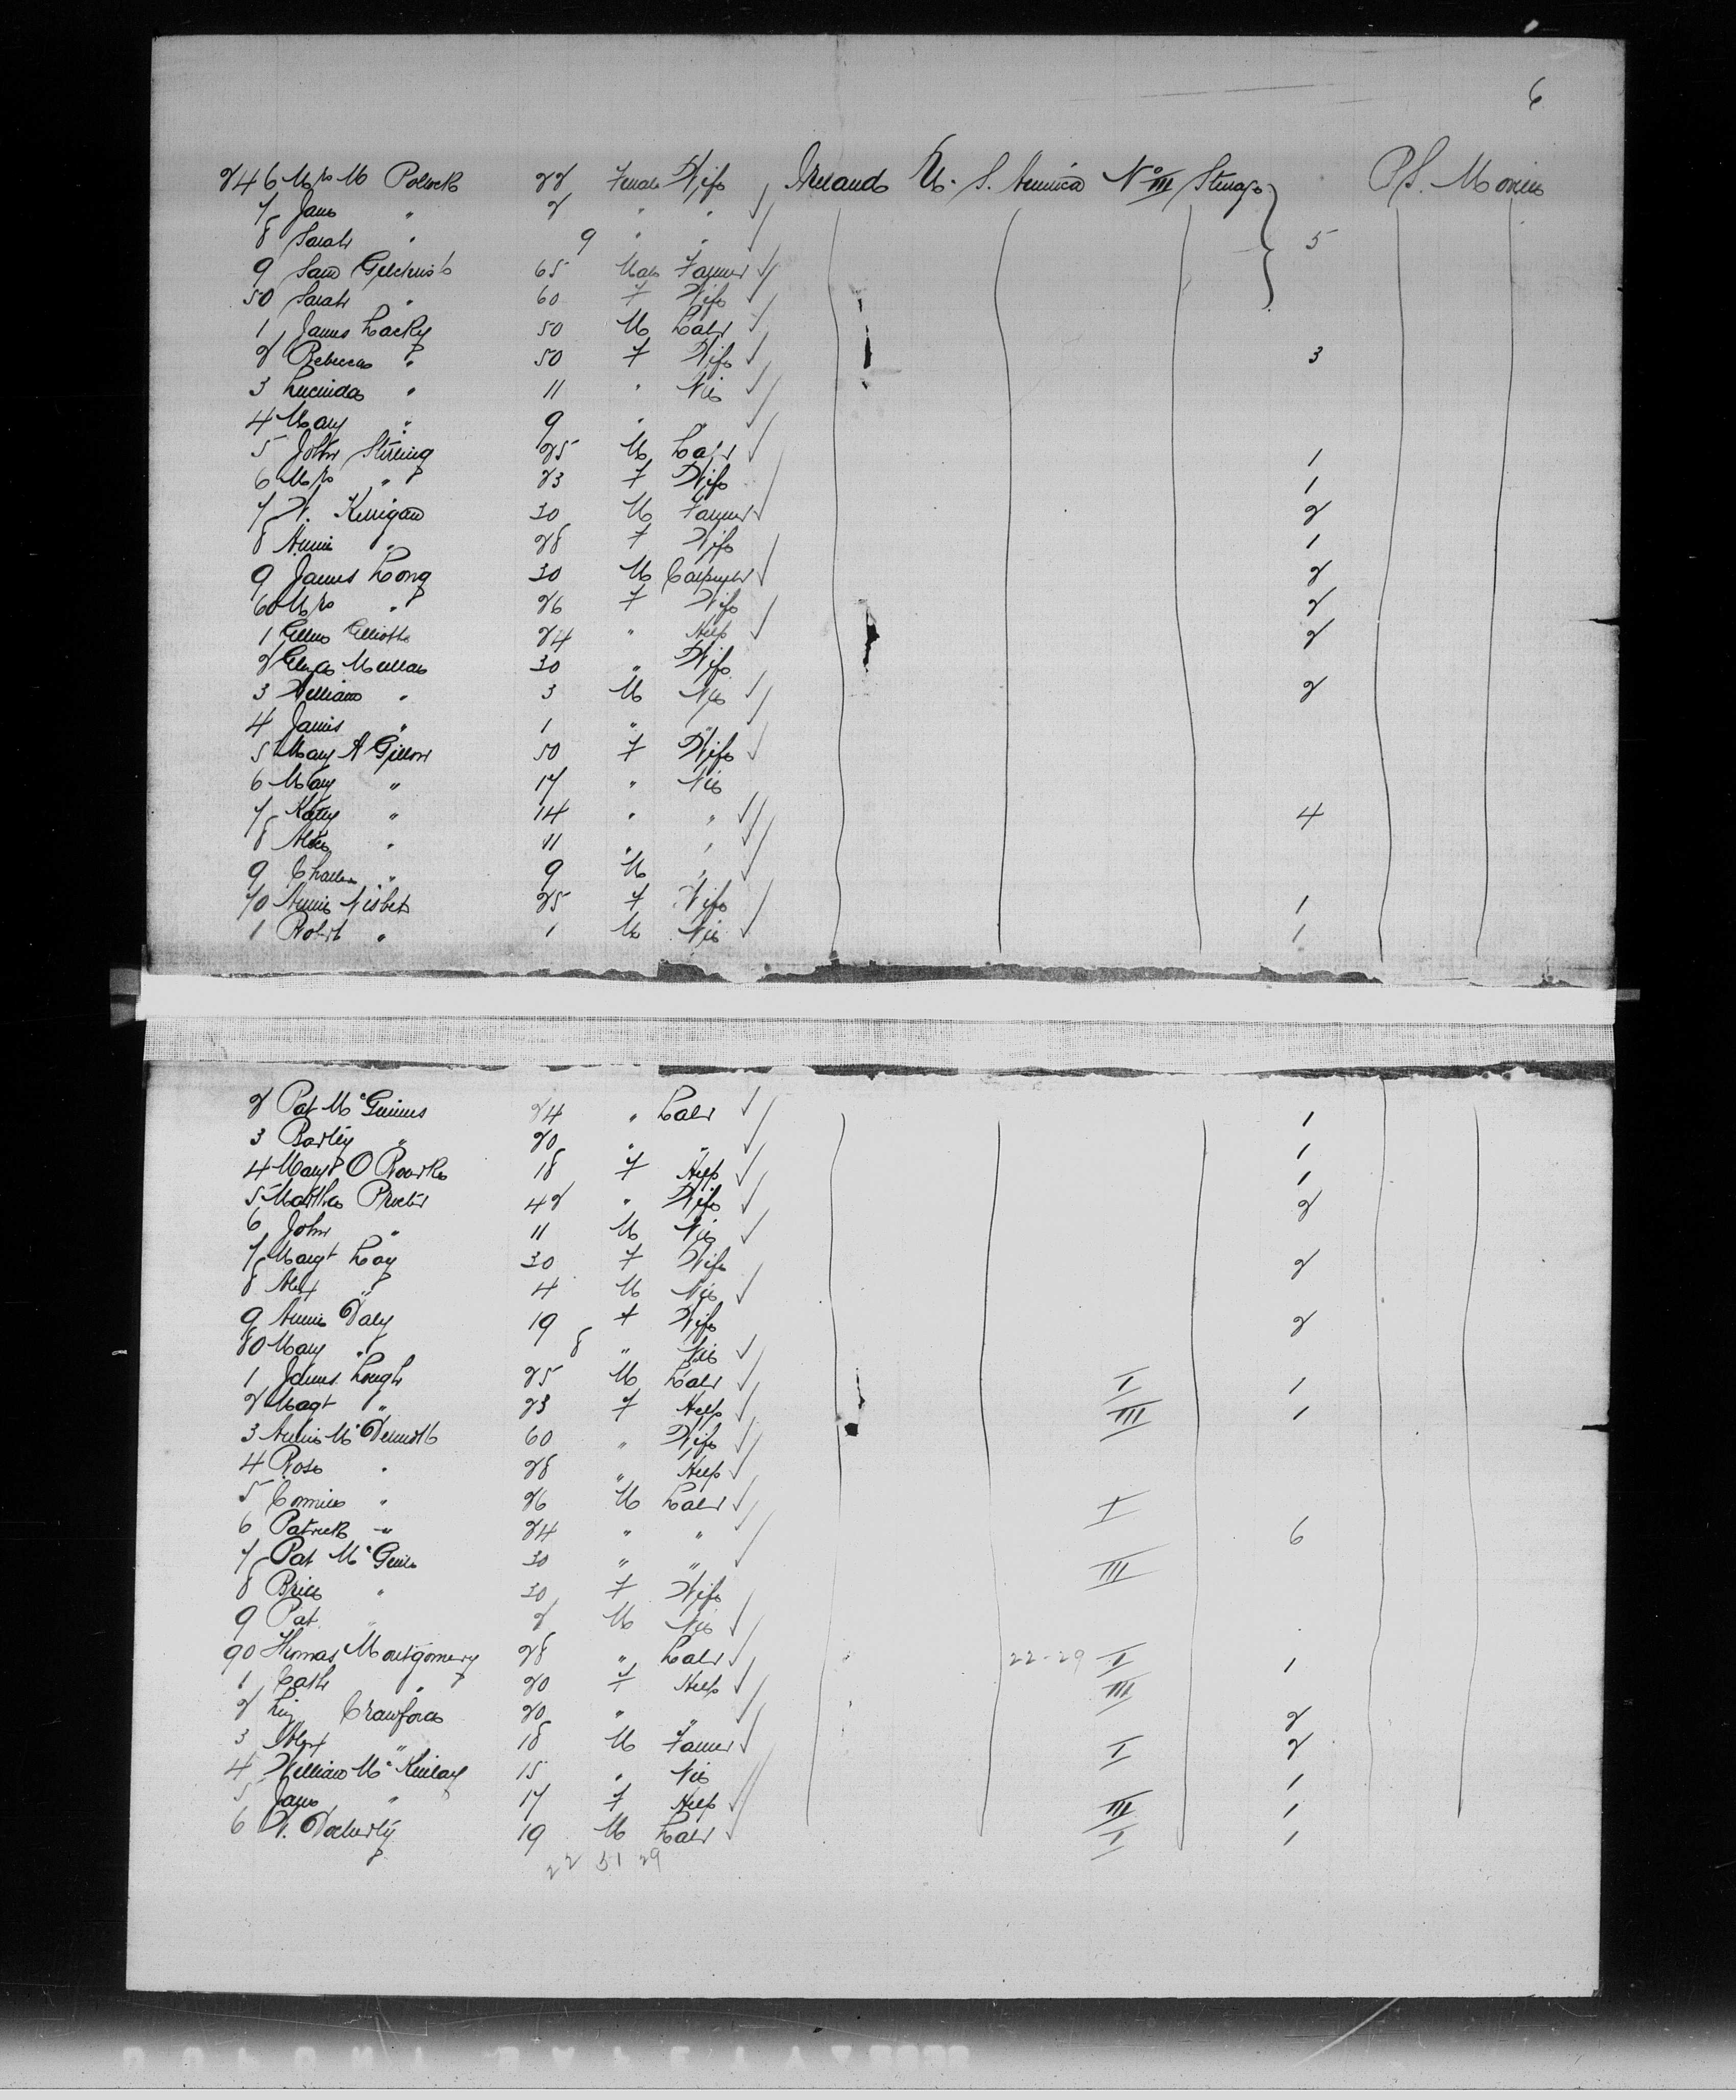 6
246 Mrs M Polock 22 Female Wife Ireland U. S. America No III Steerage P.S. Movies
7 Jane " 2 " " 5
8 Sarah " 9 " "
9 Sam Gilchrist 65 Male Farmer
50 Sarah " 60 F Wife
1 James Lacky 50 M Labr
2 Rebecca " 50 F Wife 3
3 Lucinda " 11 " Nis
4 Mary " 9 " "
5 John Stirling 25 M Labr 1
6 Mrs " 23 F Wife 1
7 W. Kerrigan 30 M Farmer 2
8 Annie " 28 F Wife 1
9 James Long 30 M Carpenter 2
60 Mrs " 26 F Wife 2
1 Ellen Elliott 24 " Help 2
2 Eliza Mullan 30 " Wife
3 William " 3 M Nis 2
4 James " 1 " "
5 Mary A Gillon 50 F Wife
6 Mary " 17 " Nis
7 Katey " 14 " " 4
8 Alice " 11 " "
9 Charles " 9 M "
70 Annie Nisbet 25 F Wife 1
1 Robert " 1 M Nis 1
2 Pat McGuinness 24 " Labr 1
3 Bartley " 20 " " 1
4 Mary O Rourke 18 F Help 1
5 Martha Procter 42 " Wife 2
6 John " 11 M Nis
7 Margt Loy 30 F Wife 2
8 Alex " 4 M Nis
9 Annie Daly 19 F Wife 2
80 Mary " 8 " Nis
1 James Lough 25 M Labr I 1
2 Magt " 23 F Help III 1
3 Annie McDermott 60 " Wife
4 Rose " 28 " Help
5 Cormick " 26 M Labr I
6 Patrick " 24 " " 6
7 Pat McGuire 30 " " III
8 Brid " 30 F Wife
9 Pat " 2 M Nis
90 Thomas Montgomery 28 " Labr 22-29 I 1
1 Cath " 20 F Help III
2 Liz Crawford 20 " " 2
3 Alex " 18 M Farmer I 2
4 William McKinlay 15 " Nis 1
5 Jane " 17 F Help III 1
6 W. Docherty 19 M Labr I 1
22 51 29